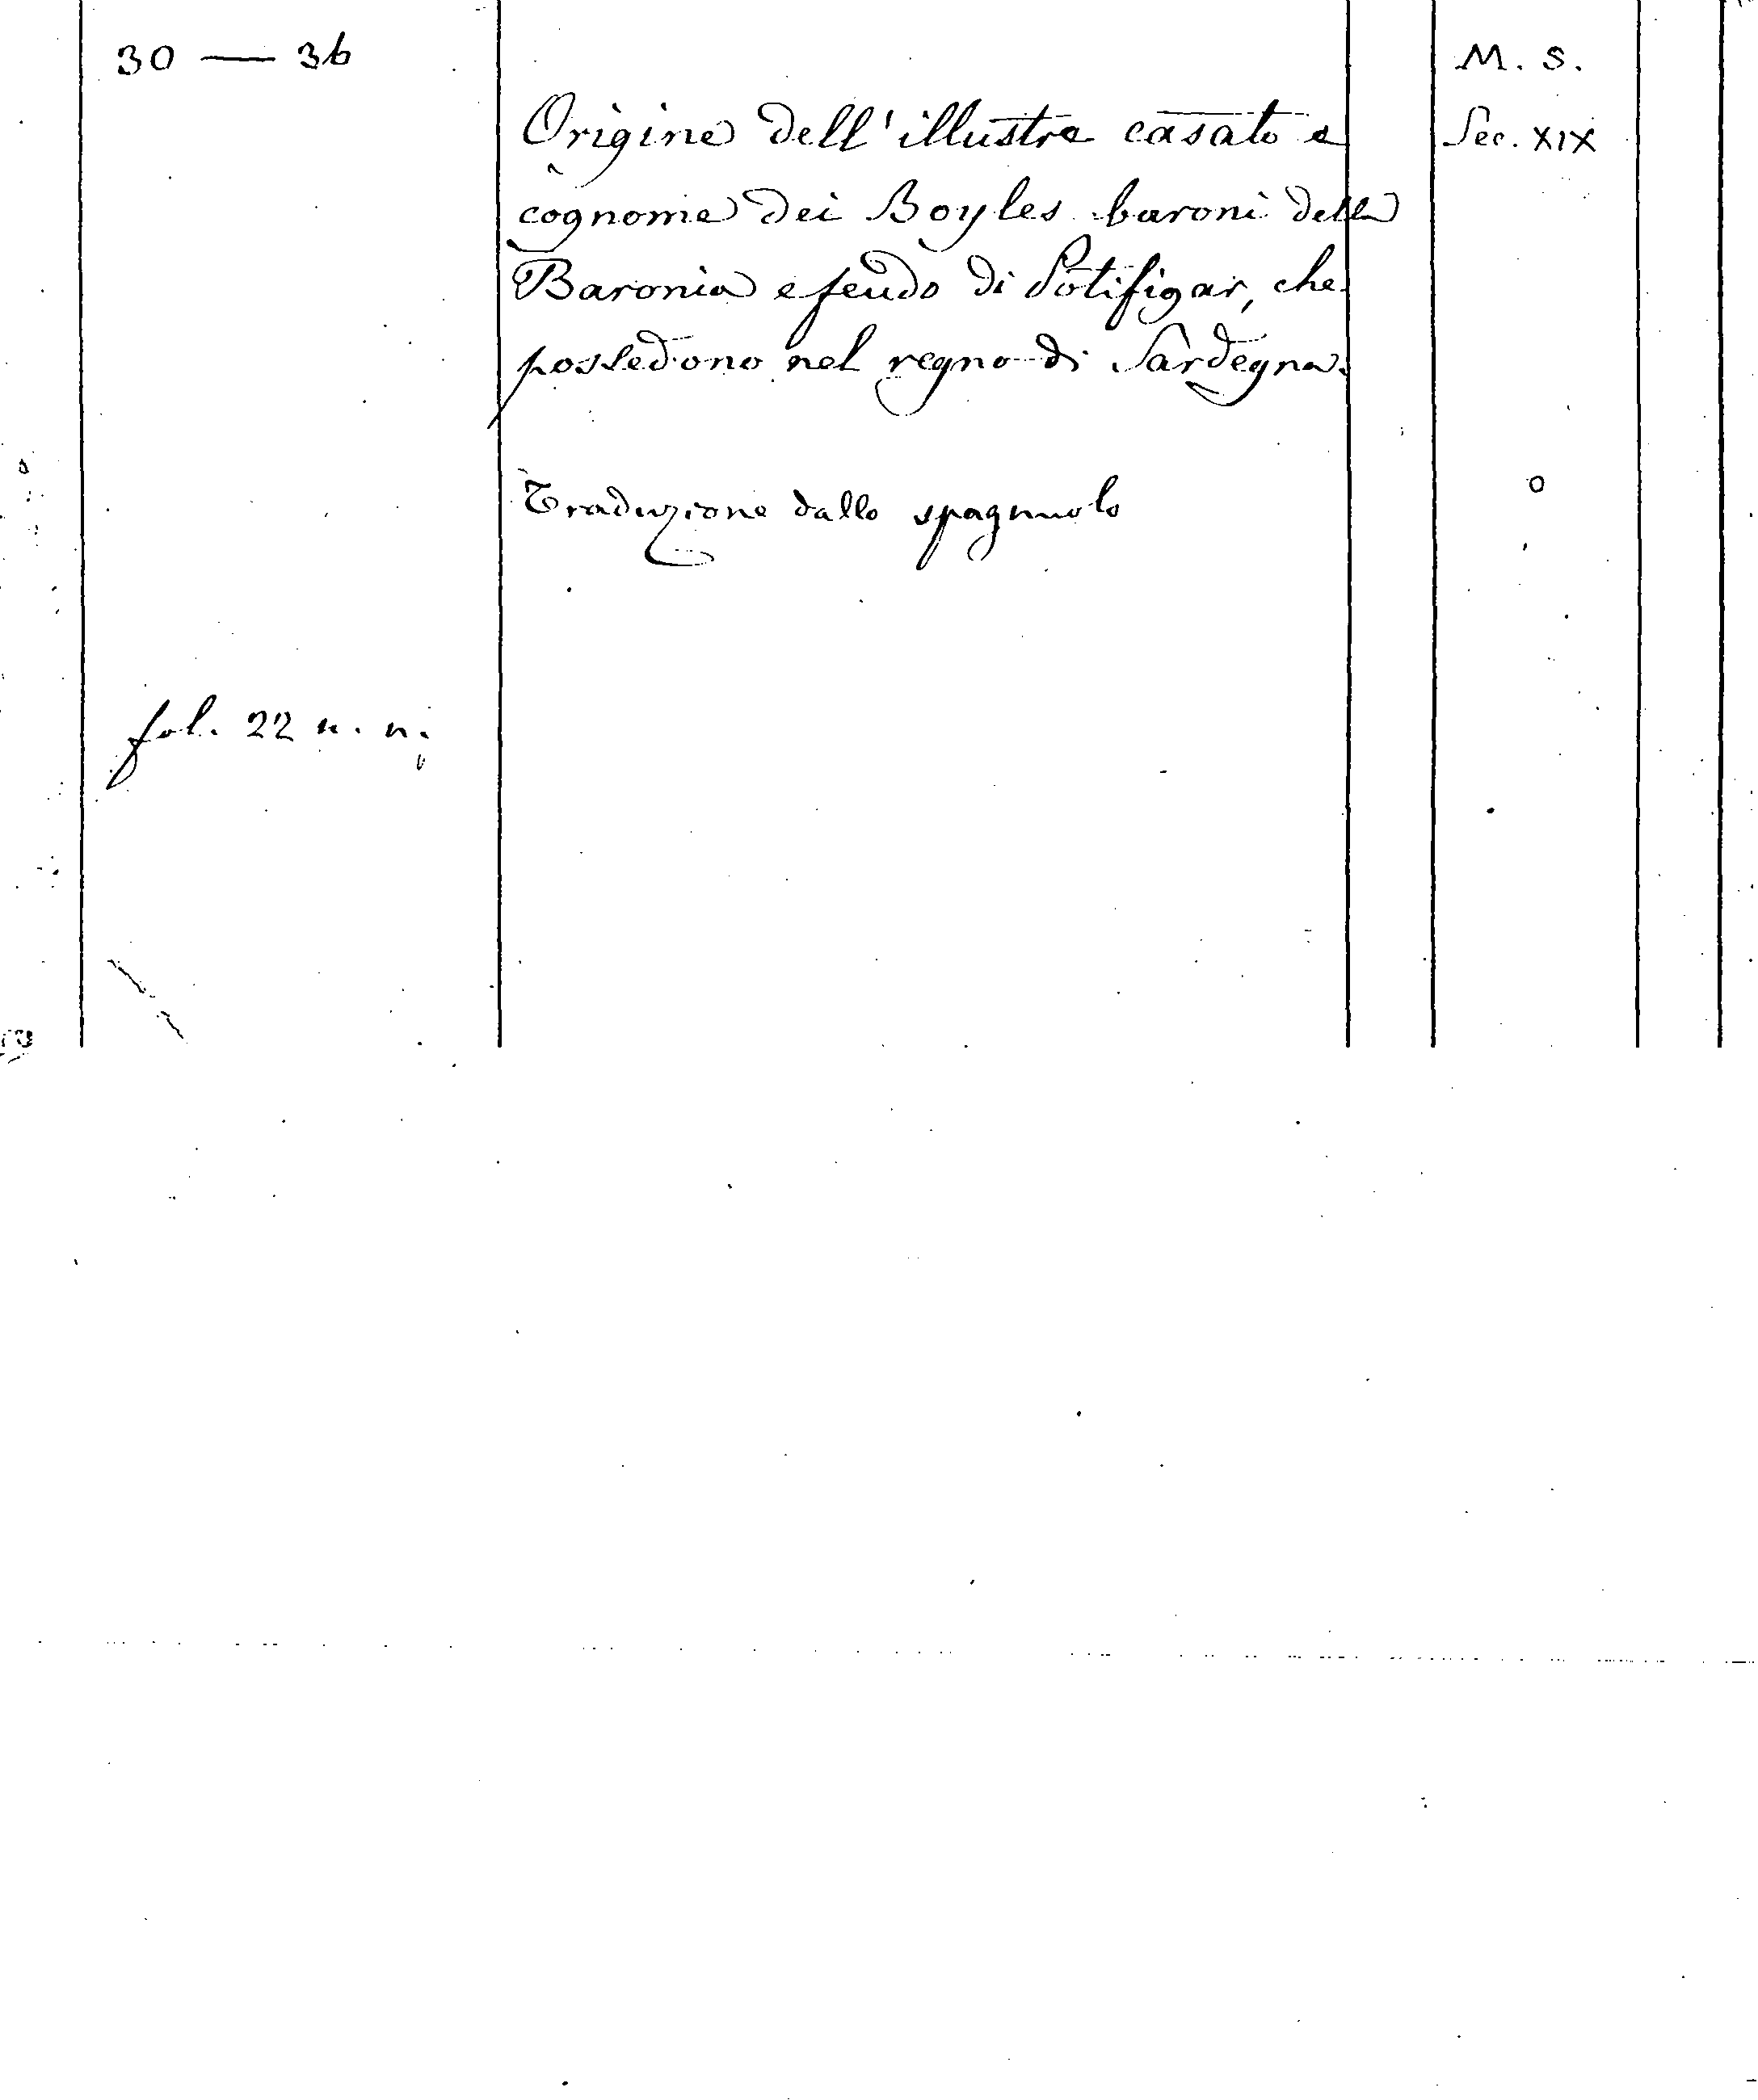 30 — 36
M. S.
Origine dell'illustre casato e
Sec. XIX
cognome dei Boyles baroni della
Baronia e feudo di Potifigar, che
possedono nel regno di Sardegna.
Traduzione dallo spagnuolo
fol. 22 n. n.